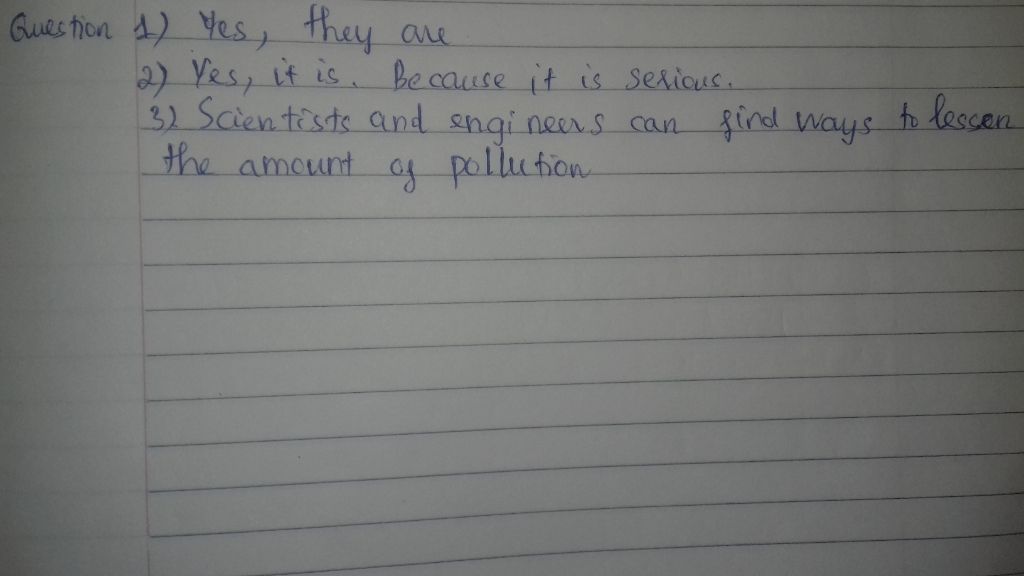 Question 1) Yes, they are
2) Yes, it is. Because it is serious.
3) Scientists and engineers can find ways to lessen
the amount of pollution